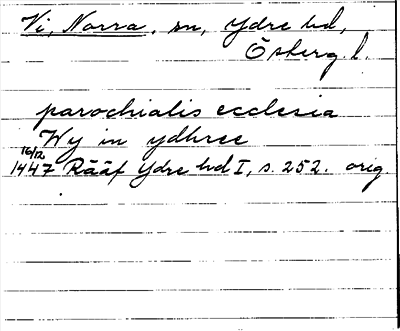 Vi, Norra, sn, Ydre hd,
Österg. l.
parochialis ecclesia
Wy in ydhree
16/12
1447 Rääf Ydre hd I, s. 252. orig.